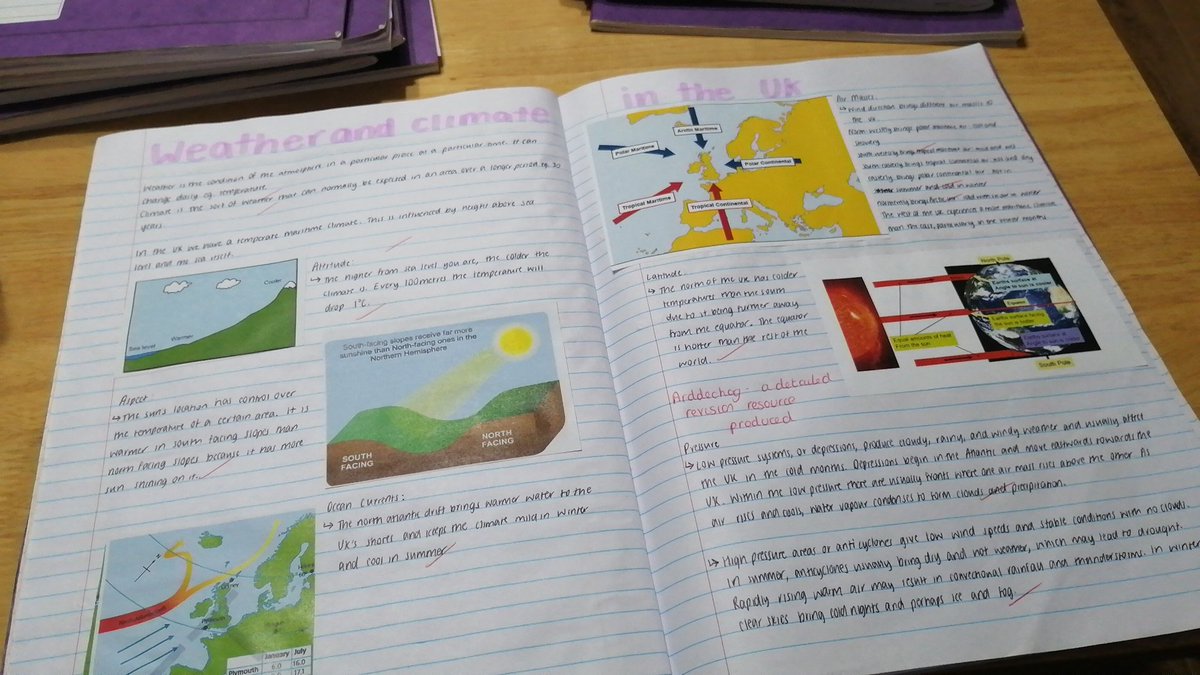 Weather and Climate
Weather is the condition of the atmosphere in a particular place at a particular time. It can
change daily eg. temperature.
Climate is the sort of weather that can normally be expected in an area over a longer period eg. 30
years.
In the UK we have a temperate maritime climate. This is influenced by height above sea
level and the sea itself.
Cooler
Warmer
Sea level
Altitude:
↳ The higher from sea level you are, the colder the
climate is. Every 100metres the temperature will
drop 1°C.
Aspect
↳ The sun's location has control over
the temperature of a certain area. It is
warmer in south facing slopes than
north facing slopes because it has more
sun shining on it.
South-facing slopes receive far more
sunshine than North-facing ones in the
Northern Hemisphere
SOUTH
FACING
NORTH
FACING
Ocean Currents:
↳ The north atlantic drift brings warmer water to the
UK's shores and keeps the climate mild in winter
and cool in summer
Plymouth
January July
Plymouth 6.0 16.0
17.1
in the UK
Arctic Maritime
Polar Maritime
Polar Continental
Tropical Maritime
Tropical Continental
Air Masses:
↳ Wind direction brings different air masses to
the UK.
showery.
The west of the UK experience a more maritime climate
than the east, particularly in the winter months.
Latitude:
↳ The north of the UK has colder
temperatures than the south
due to it being further away
from the equator. The equator
is hotter than the rest of the
world.
North Pole
Earths surface at
Angle to sun is cooler
Equator
Earths surface facing
the sun is hotter
Equal amounts of heat
From the sun
Earths surface at
Angle to sun is cooler
South Pole
Ardderchog - a detailed
revision resource
produced
Pressure
↳ Low pressure systems, or depressions, produce cloudy, rainy, and windy weather and usually affect
the UK in the cold months. Depressions begin in the Atlantic and move eastwards towards the
UK. Within the low pressure there are usually fronts where one air mass rises above the other. As
air rises and cools, water vapour condenses to form clouds and precipitation.
↳ High pressure areas or anticyclones give low wind speeds and stable conditions with no clouds.
In summer, anticyclones usually bring dry and hot weather, which may lead to drought.
Rapidly rising warm air may result in convectional rainfall and thunderstorms. In winter
clear skies bring cold nights and perhaps ice and fog.